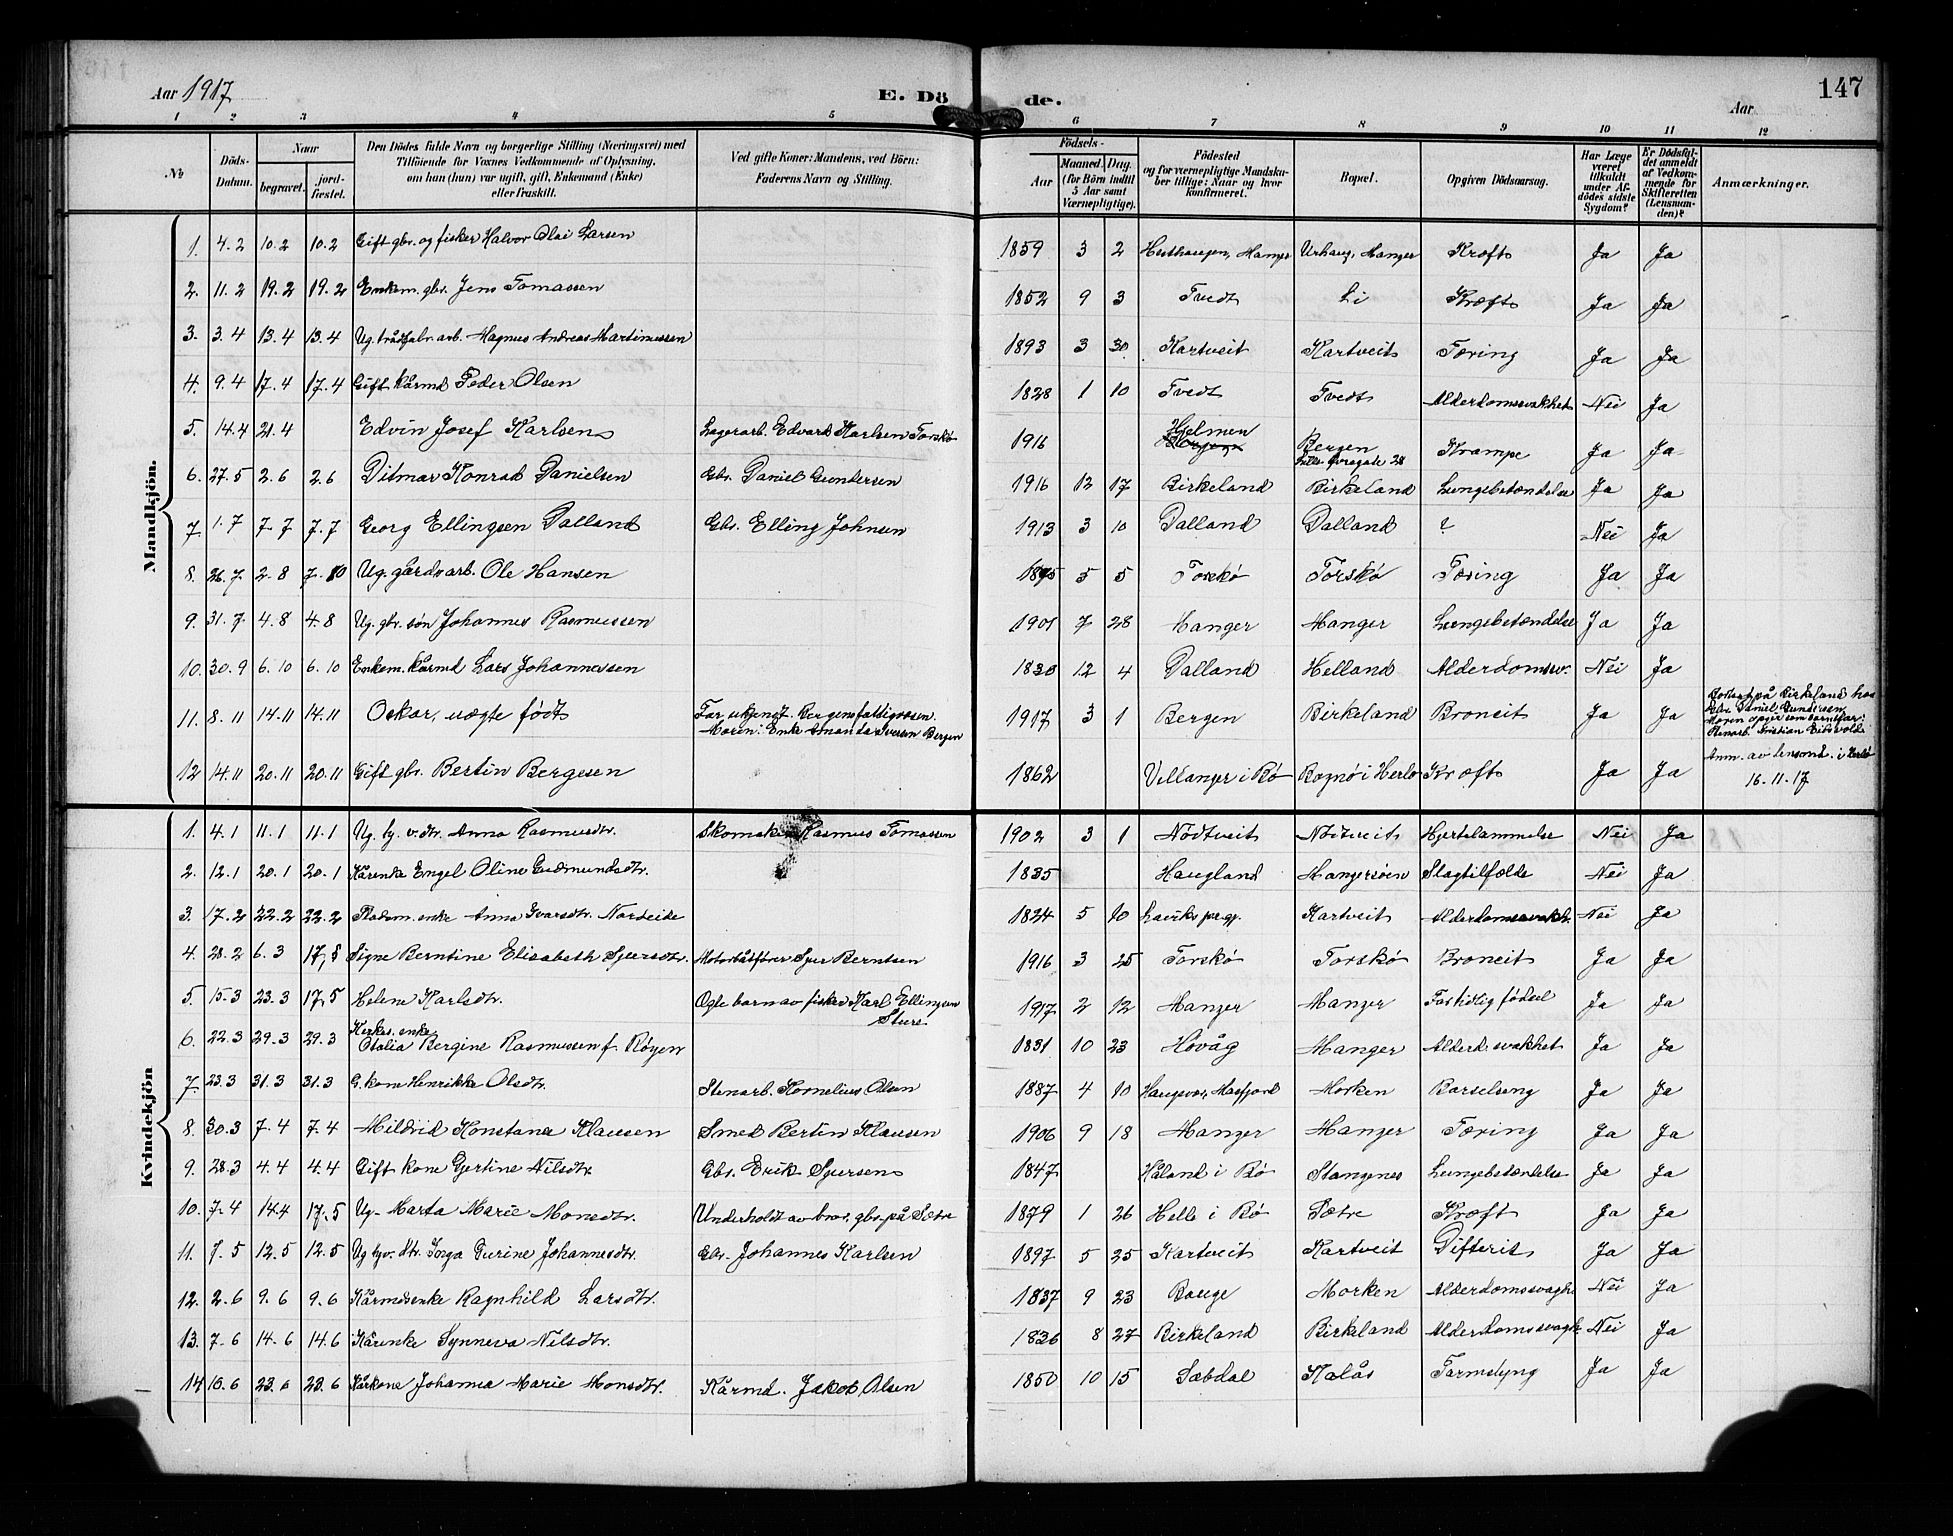 Aar 1917 E. Dö de. Aar 147
1 2 3 4 5 6 7 8 9 10 11 12
No Döds-Datum. Naar begravet. jordfæstet. Den Dödes fulde Navn og borgerlige Stilling (Næringsvei) med Tilföiende for Voxnes Vedkommende af Oplysning, om han (hun) var ugift, gift, Enkemand (Enke) eller fraskilt. Ved gifte Koner: Mandens, ved Börn: Faderens Navn og Stilling. Födsels- Aar Maaned. Dag. (for Börn indtil 5 Aar samt Værnepligtige). Födested og for værnepligtige Mandskaber tillige: Naar og hvor konfirmeret. Bopæl. Opgiven Dödsaarsag. Har Læge været tilkaldt under Afdödes sidste Sygdom? Er Dödsfaldet anmeldt af Vedkommende for Skifteretten (Lensmanden)? Anmærkninger.
Mandkjön.
1. 4.2 10.2 10.2 Gift gbr. og fisker Halvor Olai Larsen 1859 3 2 Manger Urhaug, Manger Kræft Ja Ja
2. 11.2 19.2 19.2 Enkem. gbr. Jens Tomassen 1852 9 3 Tvedt Li Kræft Ja Ja
3. 3.4 13.4 13.4 Ug. trådfabr. arb. Magnus Andreas Martinussen 1893 3 30 Kartveit Kartveit Tæring Ja Ja
4. 9.4 17.4 17.4 Gift kårmd Peder Olsen 1828 1 10 Tvedt Tvedt Alderdomssvakhet Nei Ja
5. 14.4 21.4 Edvin Josef Karlsen Lagerarb. Edvard Karlsen Torskø 1916 Hjelmen Bergen Krampe Ja Ja
6. 27.5 2.6 2.6 Ditmar Konrad Danielsen Gbr. Daniel Gundersen 1916 12 17 Birkeland Birkeland Lungebetændelse Ja Ja
7. 1.7 7.7 7.7 Georg Ellingsen Dalland Gbr. Elling Johnsen 1913 3 10 Dalland Dalland ? Nei Ja
8. 26.7 2.8 7.10 Ug. gårdsarb. Ole Hansen 1895 5 5 Torskø Torskø Tæring Ja Ja
9. 31.7 4.8 4.8 Ug. gbr. søn Johannes Rasmussen 1901 7 28 Manger Manger Lungebetændelse Ja Ja
10. 30.9 6.10 6.10 Enkem. kårmd Lars Johannessen 1830 12 4 Dalland Helland Alderdomssv. Nei Ja
11. 8.11 14.11 14.11 Oskar, uægte født Far ukjent. Bergens fattigvæsen. Moren: Enke Amanda Iversen Bergen 1917 3 1 Bergen Birkeland Bronkit Ja Ja Bortsat på Birkeland hos Gbr. Daniel Gundersen. Moren opgir som barnefar: Stenarb. Kristian
12 14.11 20.11 20.11 Gift gbr. Bertin Bergesen 1862 Villanger i Bø Bognø i Herlø Kræft Ja Ja Anm. av lensmd. i Herlø 16-11-17
Kvindekjön
1. 4.1 11.1 11.1 Ug. ty. v. dtr. Anna Rasmusdtr. Skomaker Rasmus Tomassen 1902 3 1 Nødtveit Nødtveit Hjertelammelse Nei Ja
2. 12.1 20.1 20.1 Kårenke Engel Oline Gudmundsdtr. 1835 Haugland Mangersøen Slagtilfælde Nei Ja
3. 17.2 22.2 22.2 Pladsm. enke Anna Ivarsdtr. Nordeide 1824 5 10 Laviks prgj. Kartveit Alderdomssvakh. Nei Ja
4. 28.2 6.3 17.5 Signe Berntine Elisabeth Sjursdtr. Motorbåtfører Sjur Berntsen 1916 3 25 Torskø Torskø Bronkit Ja Ja
5. 15.3 23.3 17.5 Helene Karlsdtr. Ogte barn av fisker Karl Ellingsen Sture 1917 2 12 Manger Manger Fortidlig fødsel Ja Ja
6. 22.3 29.3 29.3 Kirkes. enke Otalia Bergine Rasmussen f. Røyen 1831 10 23 Høvåg Manger Alderd. svakhet Ja Ja
7. 23.3 31.3 31.3 G. kone Henrikke Olsdtr. Stenarb. Kornelius Olsen 1887 4 10 Haugsvær, Masfjord Morken Barselseng Ja Ja
8. 30.3 7.4 7.4 Mildrid Konstanse Klausen Smed Bertin Klausen 1906 9 18 Manger Manger Tæring Ja Ja
9. 28.3 4.4 4.4 Gift kone Gjertine Nilsdtr. Gbr. Erik Sjursen 1847 Håland i Bø Stangenes Lungebetændelse Ja Ja
10. 7.4 14.4 17.5 Ug. Marta Marie Monsdtr. Underholdt av bror, gbr. på Sætre 1879 1 26 Helle i Bø Sætre Kræft Ja Ja
11. 7.5 12.5 12.5 Ug. tyv. dtr. Inga Gurine Johannesdtr. Gbr. Johannes Karlsen 1897 5 25 Kartveit Kartveit Difterit Ja Ja
12. 2.6 9.6 9.6 Kårmdsenke Ragnhild Larsdtr. 1837 9 23 Bauge Morken Alderdomssvagh. Nei Ja
13. 7.6 14.6 14.6 Kårenke Synneva Nilsdtr. 1836 8 27 Birkeland Birkeland Alderdomssvagh. Nei Ja
14 16.6 23.6 23.6 Kårkone Johanna Marie Monsdtr. Kårmd. Jakob Olsen 1850 10 15 Sæbdal Kalås Tarmslyng Ja Ja